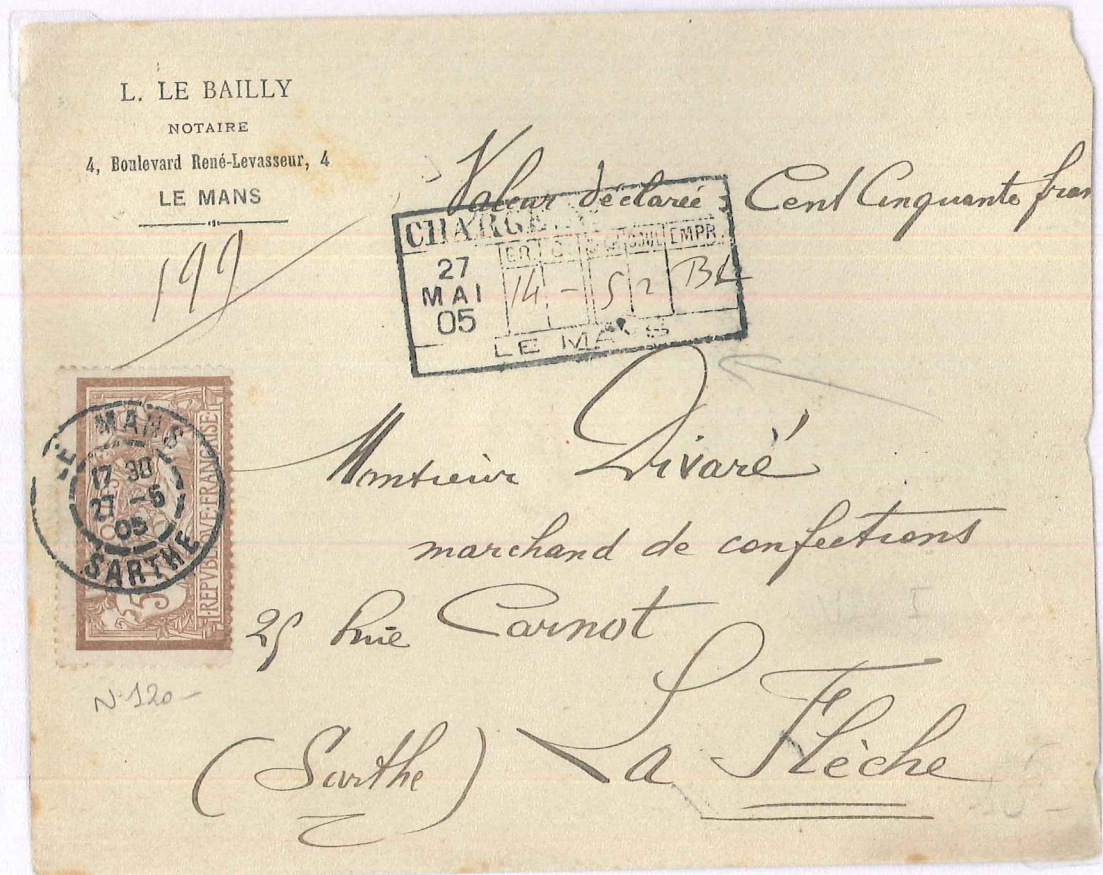 L. LE BAILLY
NOTAIRE
4, Boulevard René-Levasseur, 4
LE MANS
Valeur déclarée Cent Cinquante fran
199
CHARGE
27 MAI 05
14 - 5 2
EMPR.
LE MANS
LE MANS
17 30
27 -5
05
SARTHE
REPVBLIQVE FRANÇAISE
50
Monsieur Divaré
marchand de confections
25 Rue Carnot
La Flèche
(Sarthe)
N. 120-